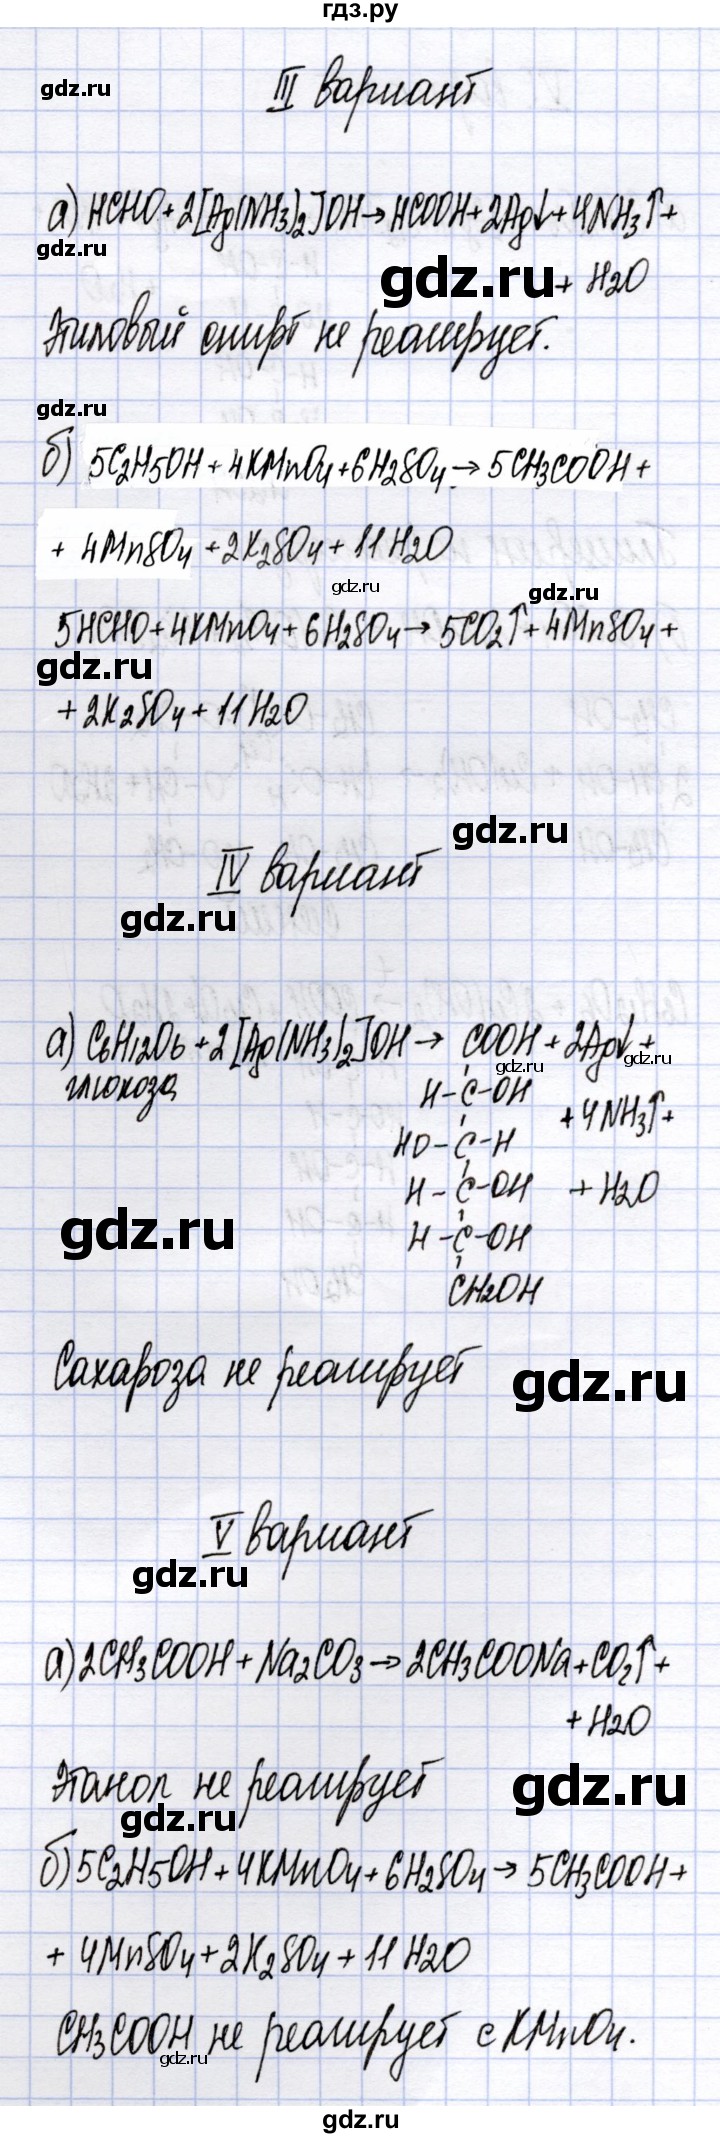 гдз.ру
III вариант
gdz.ru
а) HCHO+2[Ag(NH3)2]OH→HCOOH+2Ag↓+4NH3↑+
gdz.ru
gdz.ru
+ H2O
Этиловый спирт не реагирует.
gdz.ru
б) 5C2H5OH+4KMnO4+6H2SO4→5CH3COOH+
+ 4MnSO4+2K2SO4+11H2O
gdz.ru
gdz.ru
5HCHO+4KMnO4+6H2SO4→5CO2↑+4MnSO4+
gdz.ru
+2K2SO4+11H2O
gdz.ru
IV вариант
gdz.ru
а) C6H12O6+2[Ag(NH3)2]OH→ COOH+2Ag↓+
gdz.ru
gdz.ru
глюкоза
H-C-OH
+4NH3↑+
HO-C-H
H-C-OH
+H2O
gdz.ru
H-C-OH
CH2OH
Сахароза не реагирует
gdz.ru
V вариант
gdz.ru
а) 2CH3COOH+Na2CO3→2CH3COONa+CO2↑+
+H2O
Этанол не реагирует
gdz.ru
gdz.ru
б) 5C2H5OH+4KMnO4+6H2SO4→5CH3COOH+
+ 4MnSO4+2K2SO4+11H2O
CH3COOH не реагирует с KMnO4.
gdz.ru
gdz.ru